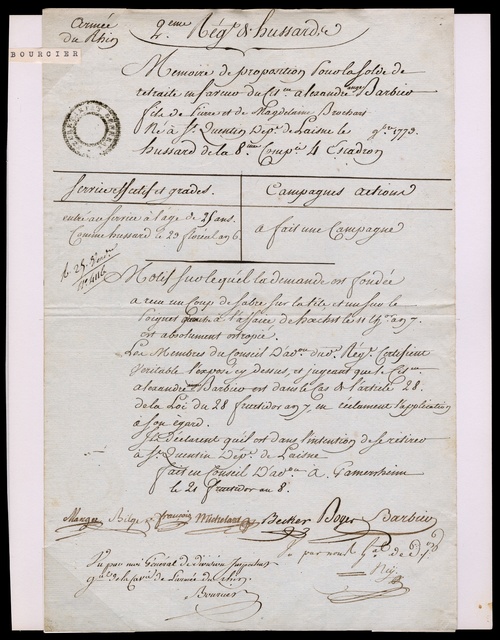 Armée
du Rhin
BOURCIER
2.eme Rég.t d'hussards
Memoire de proposition pour la solde de
retraite en faveur du Cit.en alexandre Barbier
fils de Pierre et de Magdelaine Brochart
Né à S.t Quentin Dep.t de Laisne le 9.bre 1773.
hussard de la 8.eme Comp.ie 4 Escadron
Service effectif et grades.
Campagnes actions
entré au service à l'age de 25 ans
Comme hussard le 29 floréal an 6.
a fait une Campagne
Motif sur lequel la demande est fondée
a reçu un Coup de sabre sur la tête et un sur le
poignet à l'affaire de hochst le 11 an 7.
est absolument estropié.
Les Membres du Conseil D'ad.on du 2.e Rég.t Certifient
véritable l'exposé cy dessus, et jugeant que le Cit.en
alexandre Barbier est dans le Cas de l'article 28.
de la Loi du 28 fructidor an 7, en réclament l'application
à son égard.
Ils Déclarent qu'il est dans l'intention de se retirer
à S.t Quentin Dep.t de Laisne
fait en Conseil D'ad.on à Gamersheim
le 21 fructidor an 8.
Mangin Belge françois Michelant Becker Boyer Barbier
Vu par moi Général de division Inspecteur
g.al de la Cav.ie de L'armée du Rhin.
Bourcier
Vu par nous G.al de D.on
Ney